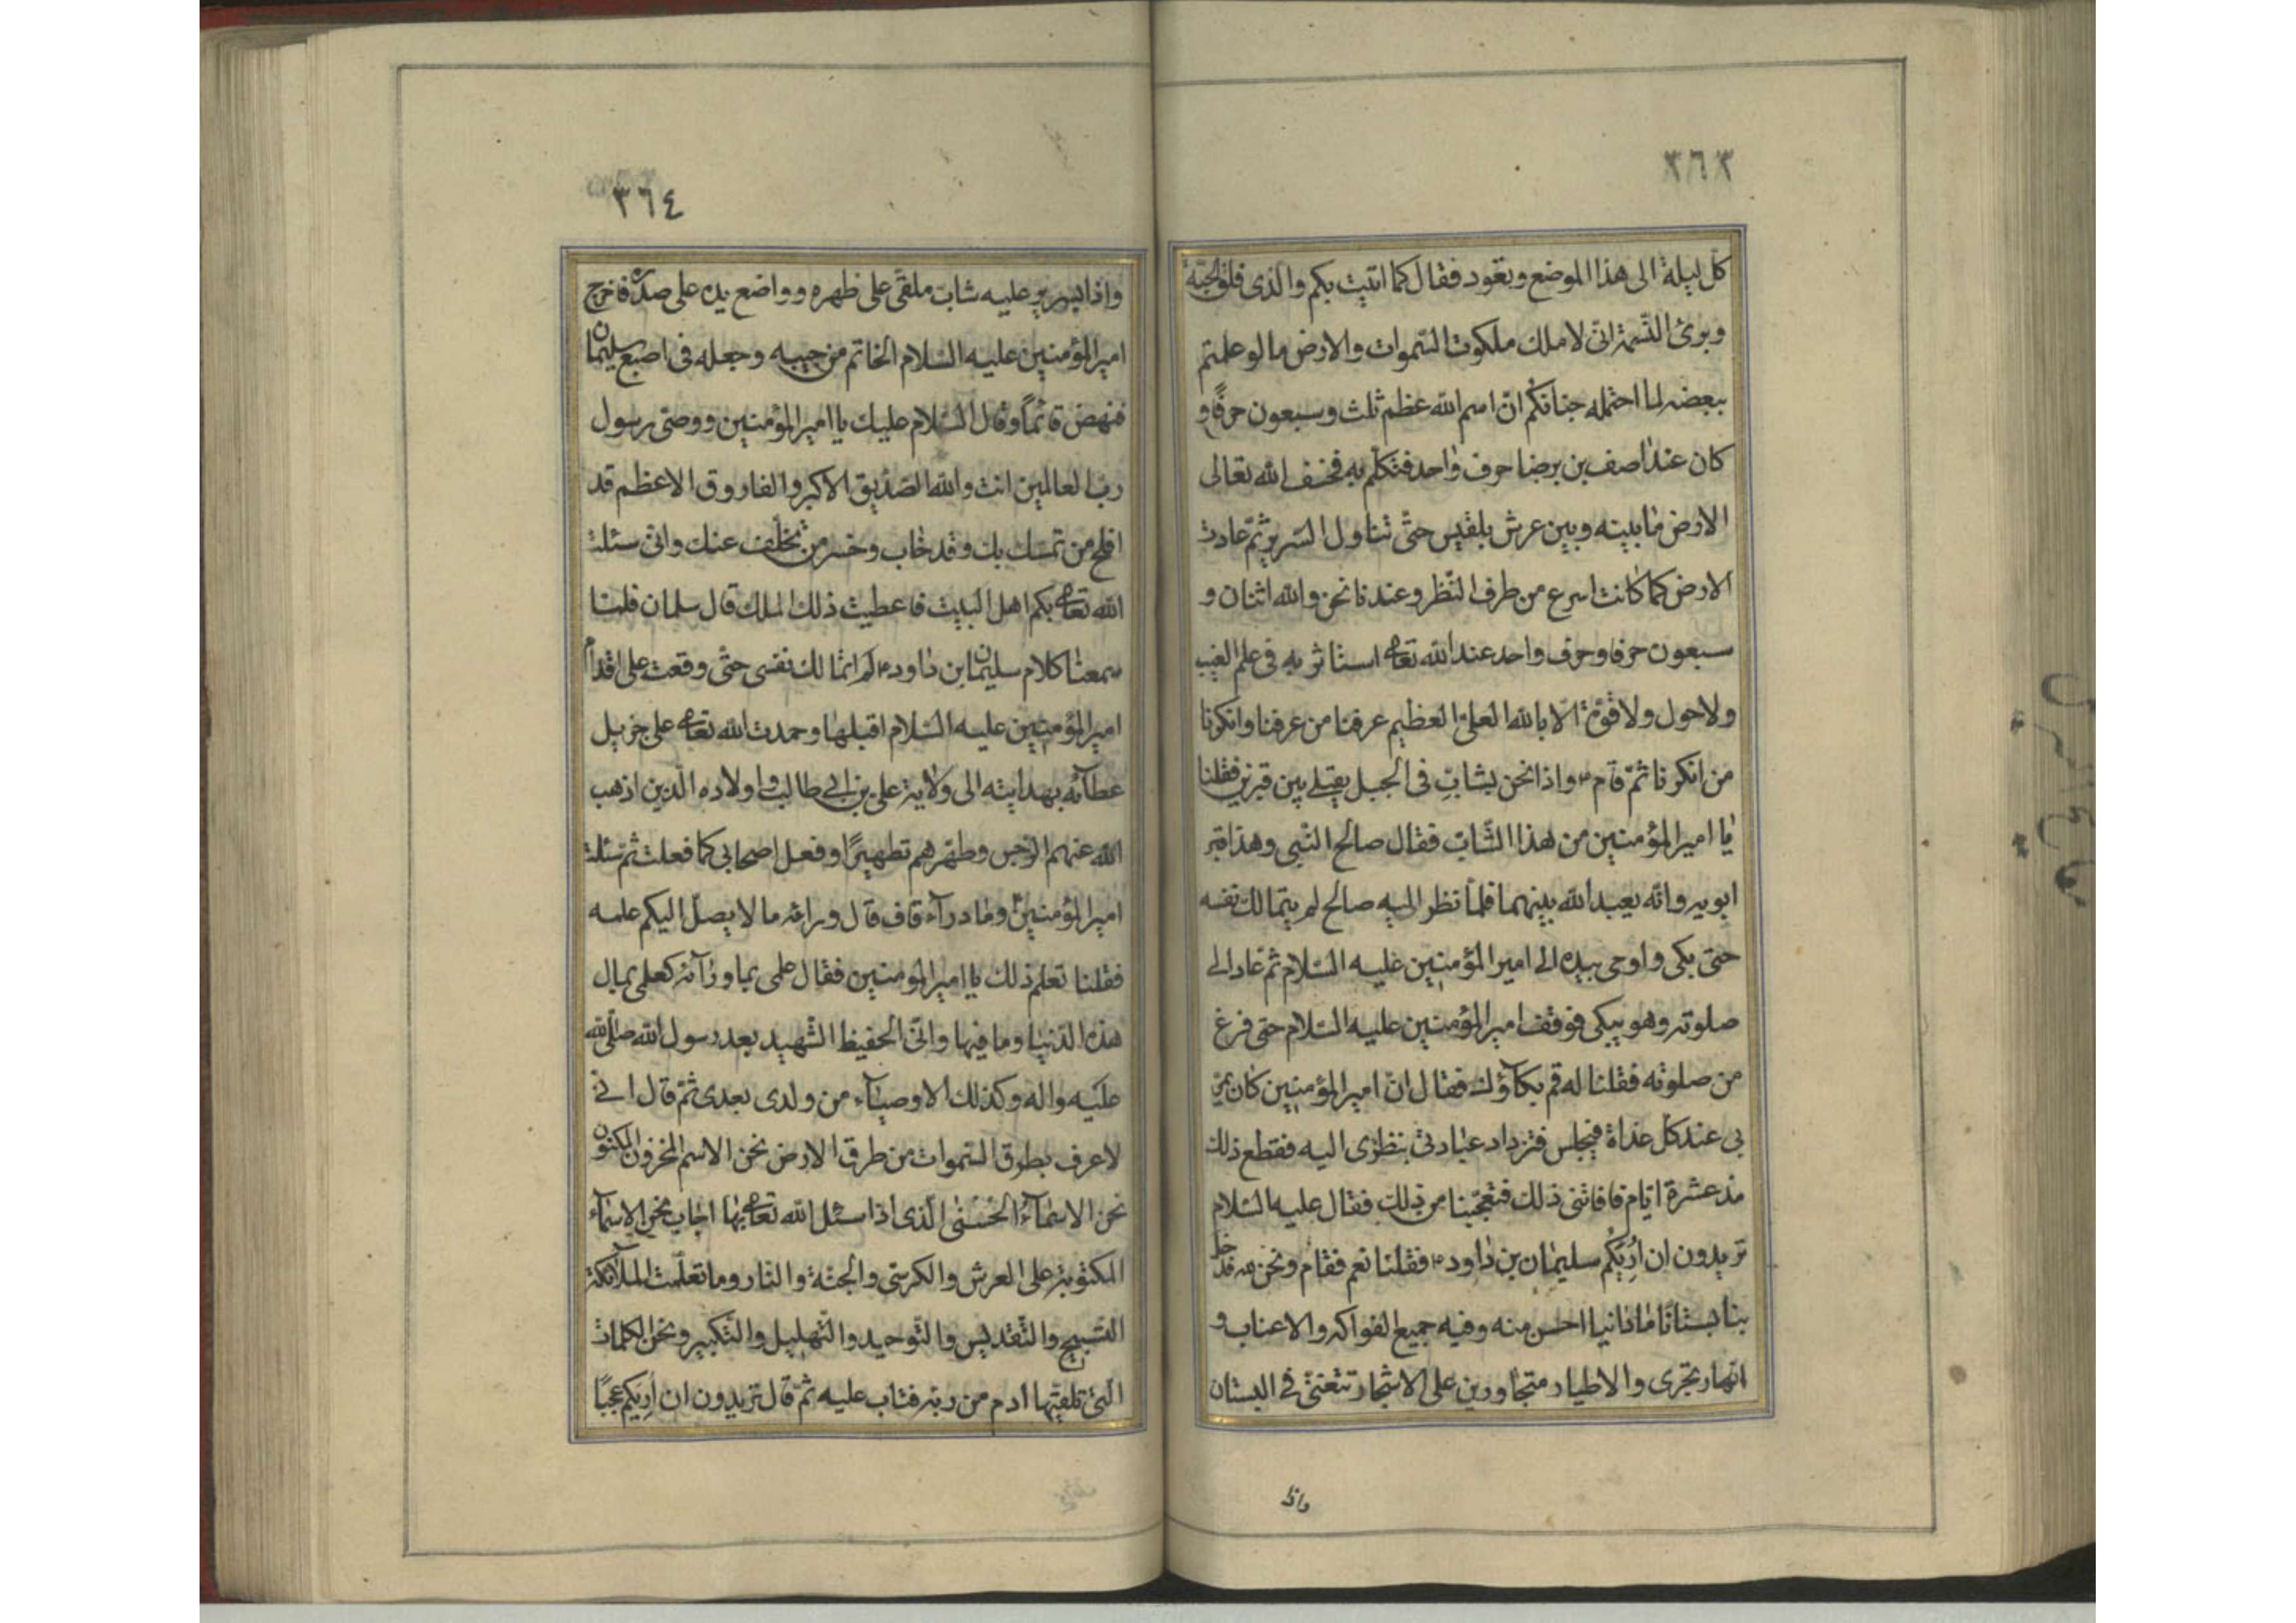 ٣٦٣
كل ليلة الى هذا الموضع وتعود فقال كما اتيت بكم والذى فلق الحبّة
وبرئ النّسمة انّى لاملك ملكوت السّموات والارض ما لو علمتم
ببعضه لما احتمله جنانكم انّ اسم الله عظم ثلث وسبعون حرفًا و
كان عند اصف بن برخيا حرف واحد فتكلّم به فخسف الله تعالى
الارض ما بينه وبين عرش بلقيس حتّى تناول السّرير ثمّ عادت
الارض كما كانت اسرع من طرف النّظر وعندنا نحن والله اثنان و
سبعون حرفا وحرف واحد عند الله تعالى استاثر به فى علم الغيب
ولا حول ولا قوّة الّا بالله العلىّ العظيم عرفنا من عرفنا وانكرنا
من انكرنا ثمّ قام ع واذا نحن بشابّ فى الجبل يصلّى بين قبرين فقلنا
يا امير المؤمنين من هذا الشّابّ فقال صالح النّبى وهذا قبر
ابويه وانّه يعبد الله بينهما فلمّا نظر اليه صالح لم يتمالك نفسه
حتى بكى واوحى بيده الى امير المؤمنين عليه السّلام ثم عاد الى
صلوته وهو يبكى فوقف امير المؤمنين عليه السّلام حتى فرغ
من صلوته فقلنا له قم بكآؤك فقال انّ امير المؤمنين كان يمرّ
بى عند كلّ غداة فيجلس فتزداد عبادتى بنظرى اليه فقطع ذلك
مذ عشرة ايّام فاقاتنى ذلك فتعجّبنا من ذلك فقال عليه السّلام
تريدون ان اُرِيَكُم سليمان بن داود ع فقلنا نعم فقام ونحن معه فدخل
بنا بستانًا ما راينا احسن منه وفيه جميع الفواكه والاعناب و
انهار تجرى والاطيار متجاورين على الاشجار تتغنّى فى البستان
واذا
٣٦٤
واذا بسرير عليه شابّ ملقًى على ظهره وواضع يده على صدره فاخرج
امير المؤمنين عليه السّلام الخاتم من جيبه وجعله فى اصبع سليمان
فنهض قائمًا وقال السّلام عليك يا امير المؤمنين ووصى رسول
ربّ العالمين انت والله الصّدّيق الاكبر والفاروق الاعظم قد
افلح من تمسّك بك وقد خاب وخسر من تخلّف عنك وانى سئلت
الله تعالى بكم اهل البيت فاعطيت ذلك الملك قال سلمان فلمّا
سمعنا كلام سليمان ابن داود ع لم اتمالك نفسى حتّى وقعت على اقدام
امير المؤمنين عليه السّلام اقبلها وحمدت الله تعالى على جزيل
عطآئه بهدايته الى ولاية على بن ابى طالب واولاده الّذين اذهب
الله عنهم الرّجس وطهّرهم تطهيرًا وفعل اصحابى كما فعلت ثمّ سئلت
امير المؤمنين ع وما ورآء قاف قال ورائه ما لا يصل اليكم علمه
فقلنا تعلم ذلك يا امير المؤمنين فقال علمى بما ورآئه كعلمى بحال
هذه الدّنيا وما فيها وانّى الحفيظ الشّهيد بعد رسول الله صلّى الله
عليه واله وكذلك الاوصيآء من ولدى بعدى ثمّ قال انى
لاعرف بطرق السّموات من طرق الارض نحن الاسم المخزون المكنون
نحن الاسمآءُ الحُسنى الّذى اذا سئل الله تعالى بها اجاب نحن الاسمآء
المكتوبة على العرش والكرسى والجنّة والنّار وما تعلّمت الملآئكة
التّسبيح والتّقديس والتّوحيد والتّهليل والتّكبير ونحن الكلمات
الّتى تلقّيها ادم من ربّه فتاب عليه ثمّ قال تريدون ان اُرِيَكم عجبًا